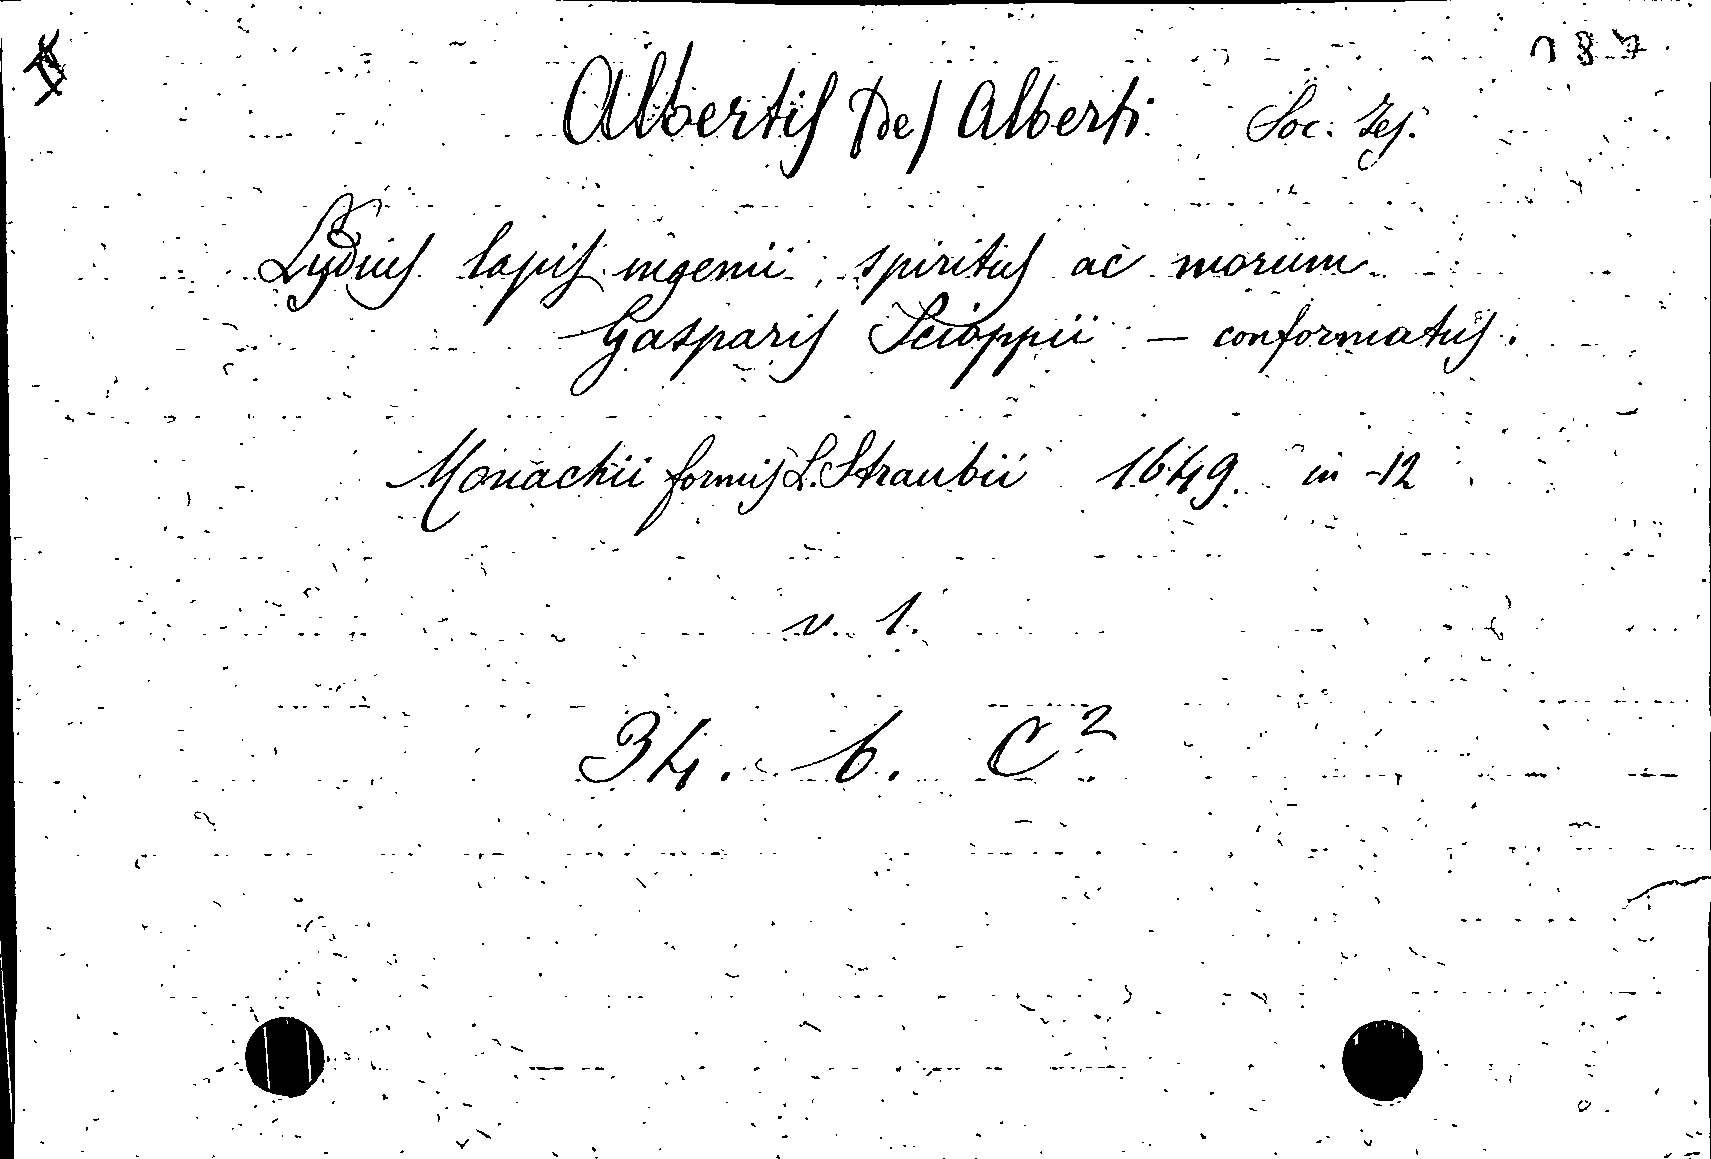 187
Albertis De / Alberti Soc. Jes.
Lydius lapis ingenii, spiritus ac morum
Gasparis Scioppii — conformatus.
Monachii formis L. Straubii 1649. in -12
v. 1.
34. 6. C²